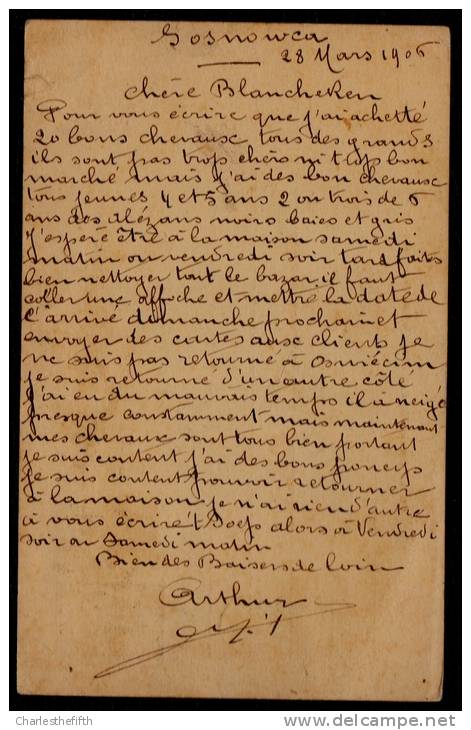 Sosnowca
28 Mars 1906
Chère Blancheken
Pour vous écrire que j'ai achetté
20 bons chevausc tous des grands
ils sont pas trop chers ni trop bon
marché mais j'ai des bon chevausc
tous jeunes 4 et 5 ans 2 ou trois de 6
ans des aléz ans noirs baies et gris
J'espère être à la maison samedi
matin ou vendredi soir tard faites
bien nettoyer tout le bazar il faut
coller une affiche et mettre la date de
l'arrivé dimanche prochain et
envoyer des cartes ausc clients je
ne suis pas retourné à Osniécim
je suis retourné d'un autre côté
J'ai eu du mauvais temps il à neigé
presque constamment mais maintenant
mes chevausc sont tous bien portant
je suis content j'ai des bons poneys
je suis content pouvoir retourner
à la maison je n'ai rien d'autre
à vous écrire alors à Vendredi
soir ou Samedi matin
Bien des Baisers de loin
Arthur
Charlesthefifth
delcampe.net